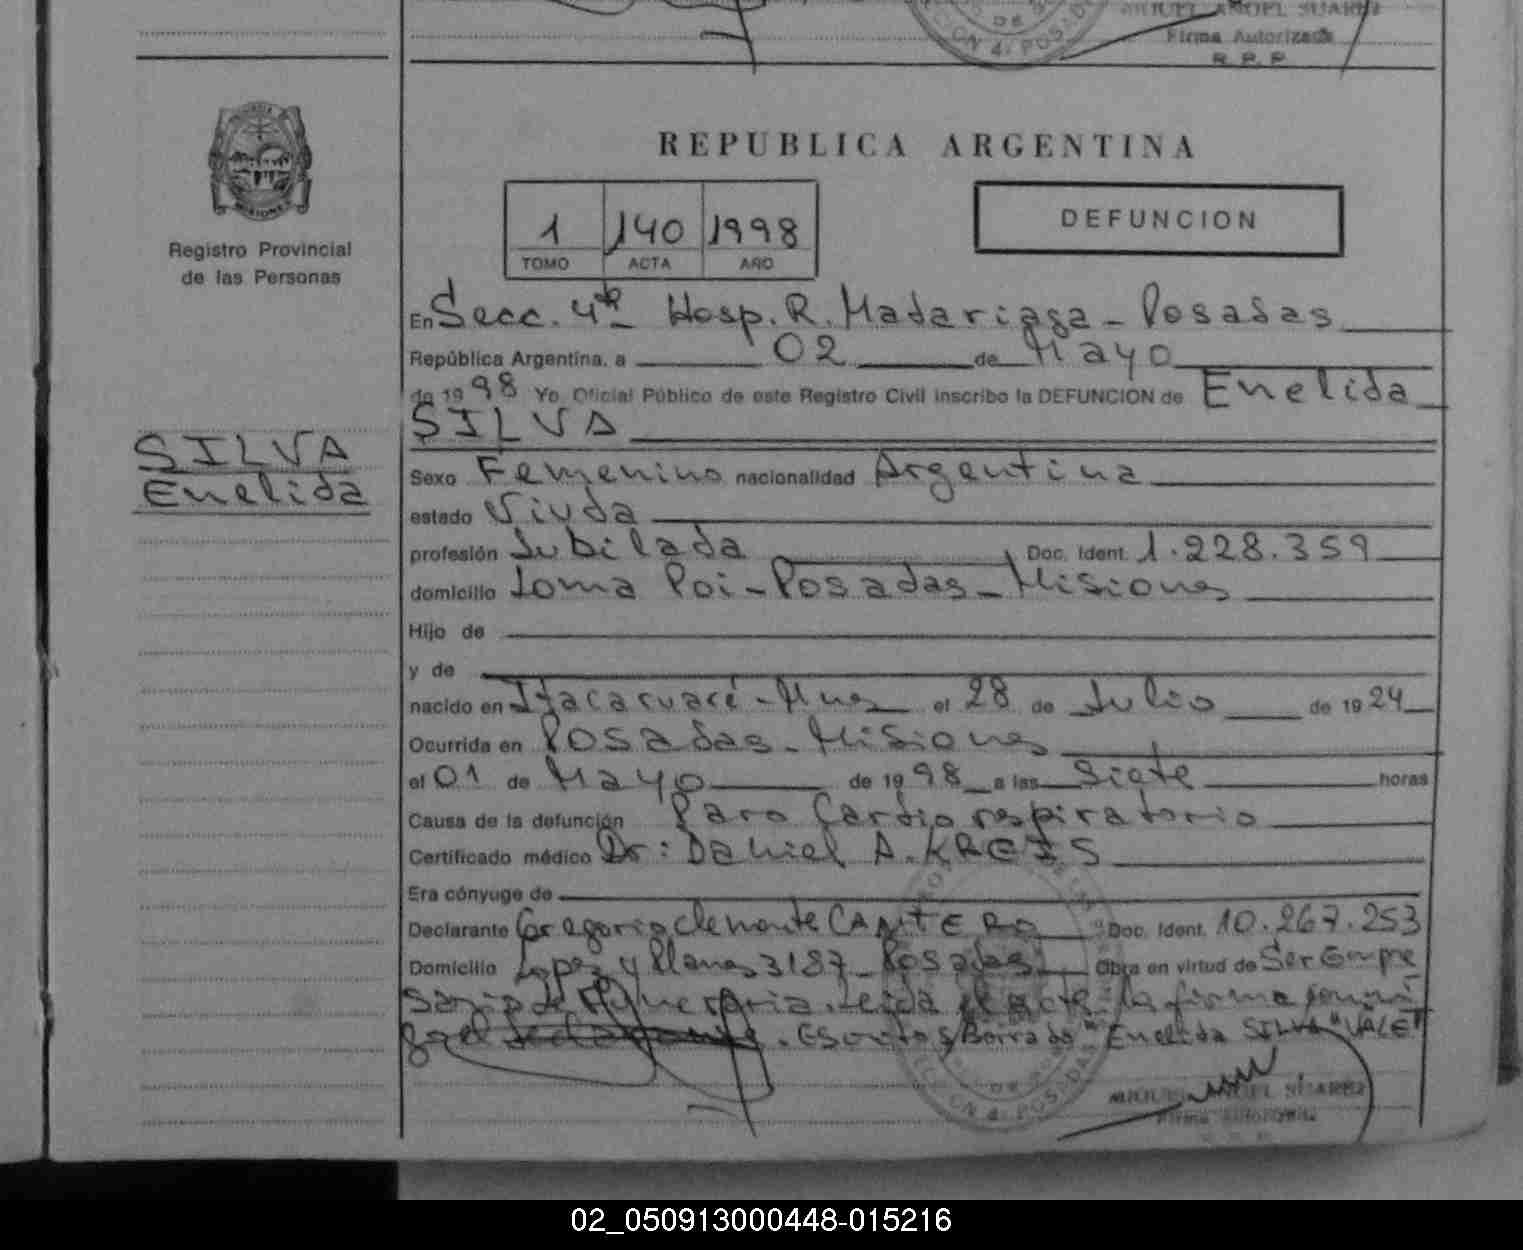 MIGUEL ANGEL SUAREZ
Firma Autorizada
R. P. P.
REPUBLICA ARGENTINA
1 140 1998
TOMO ACTA AÑO
DEFUNCION
MISIONES
Registro Provincial
de las Personas
SILVA
Enelida
En Secc. 4ta Hosp. R. Madariaga - Posadas
República Argentina, a 02 de Mayo
de 1998 Yo, Oficial Público de este Registro Civil inscribo la DEFUNCION de Enelida
SILVA
Sexo Femenino nacionalidad Argentina
estado Viuda
profesión Jubilada Doc. Ident. 1.228.359
domicilio Loma Poi - Posadas - Misiones
Hijo de
y de
nacido en Itacaruaré - Mnes el 28 de Julio de 1924
Ocurrida en Posadas - Misiones
el 01 de Mayo de 1998 a las Siete horas
Causa de la defunción Paro Cardiorespiratorio
Certificado médico Dr: Daniel A. KREIS
Era cónyuge de
Declarante Gregorio Clemente CANTERO Doc. Ident. 10.267.253
Domicilio Lopez y Planes 3187 - Posadas Obra en virtud de Ser Empre
sario de Funeraria. Leida el acta, la firma
. Escritos/Borrado "Enelida SILVA" VALE"
MIGUEL ANGEL SUAREZ
Firma Autorizada
02_050913000448-015216